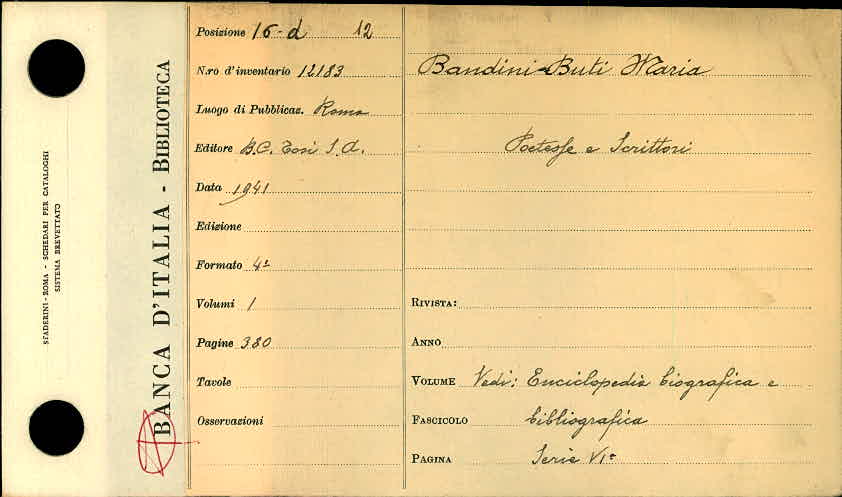 SPADERINI - ROMA - SCHEDARI PER CATALOGHI
SISTEMA BREVETTATO
BANCA D'ITALIA - BIBLIOTECA
Posizione 16-d 12
N.ro d'inventario 12183
Luogo di Pubblicaz. Roma
Editore B.C. Tosi S.A.
Data 1941
Edizione
Formato 4º
Volumi 1
Pagine 380
Tavole
Osservazioni
Bandini-Buti Maria
Poetesse e Scrittori
RIVISTA:
ANNO
VOLUME Vedi: Enciclopedia biografica e
FASCICOLO bibliografica
PAGINA Serie VIª